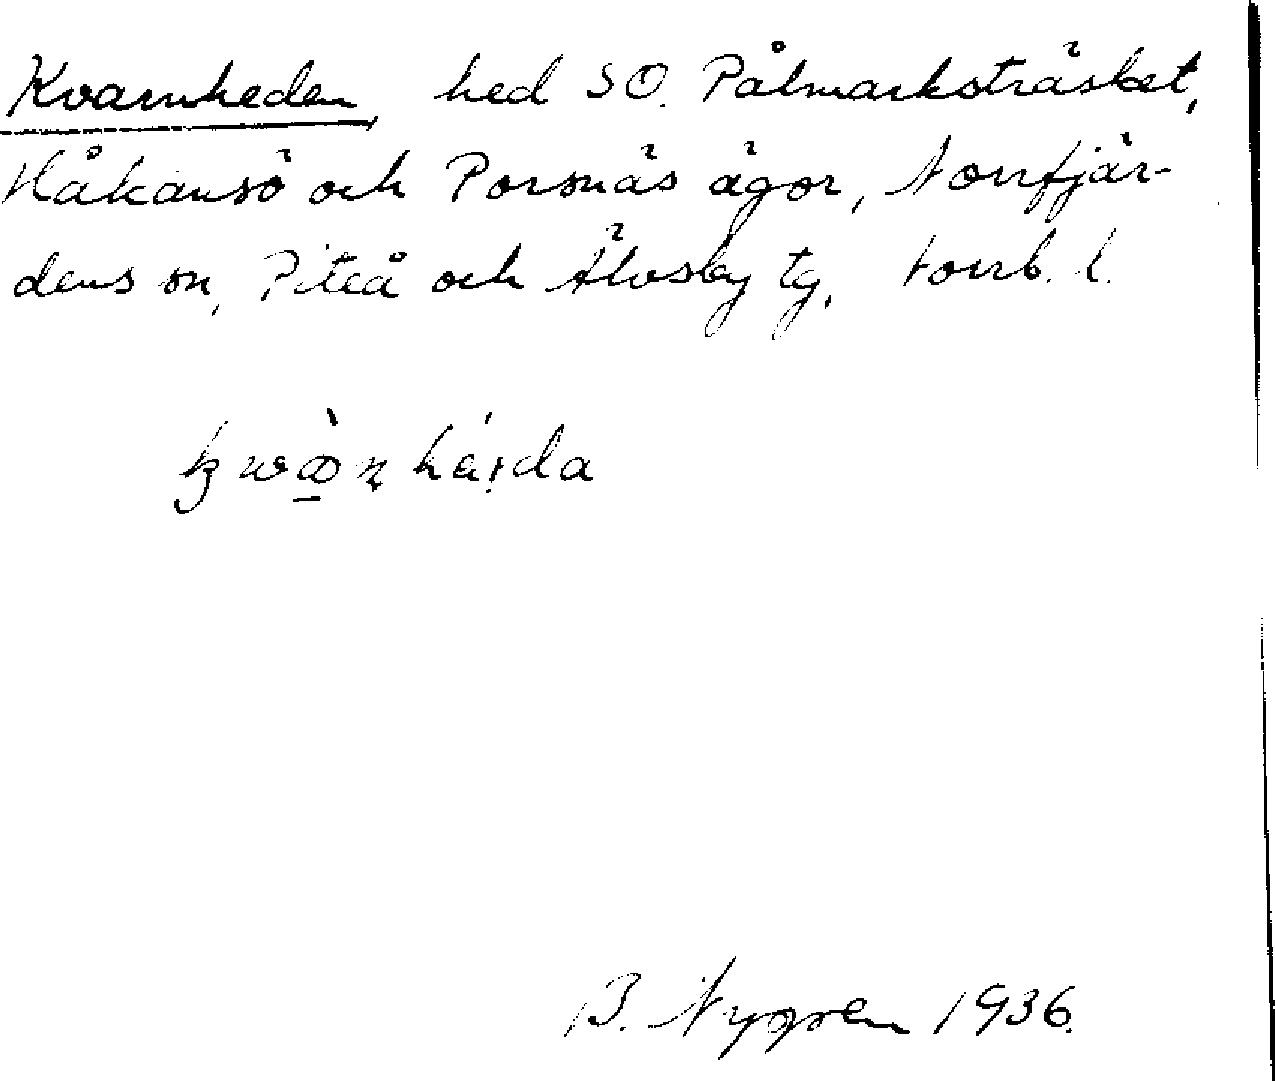 Kvarnheden, hed SO. Pålmarksträsket,
Håkansö och Porsnäs ägor, Norrfjär-
dens sn, Piteå och Älvsby tg, Norrb. l.
B. Nygren 1936.